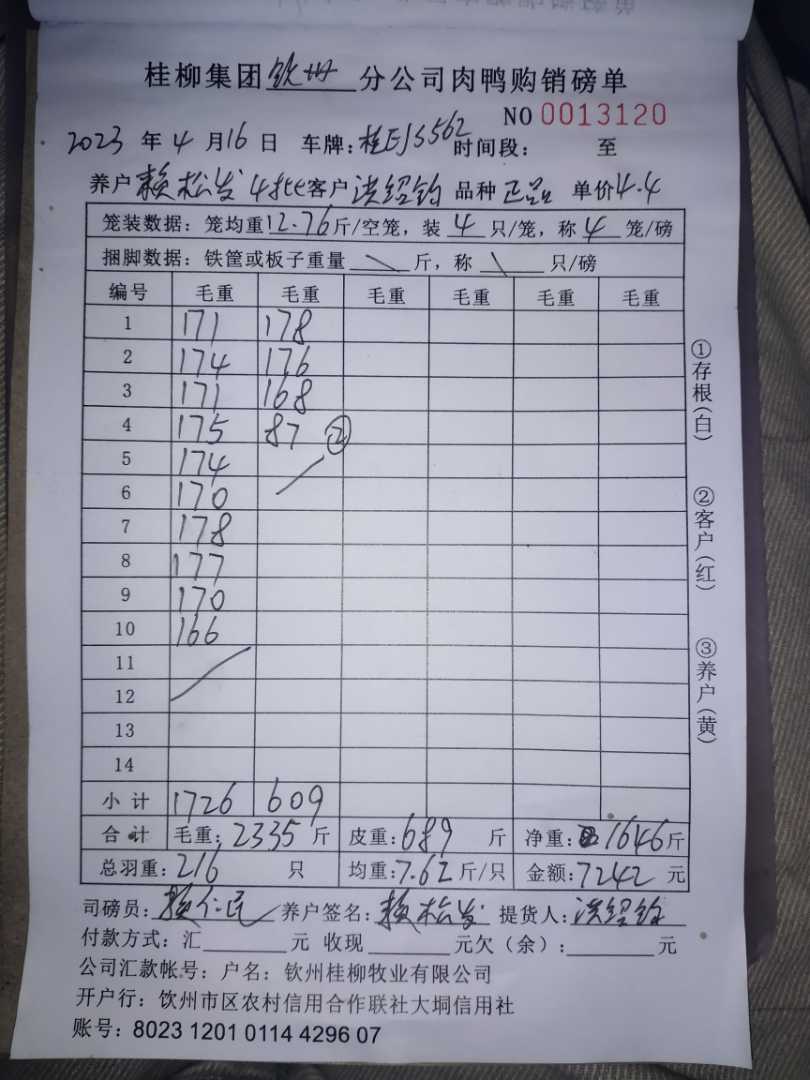 桂柳集团钦州分公司肉鸭购销磅单
NO 0013120
2023 年 4 月 16 日 车牌：桂EJS562 时间段： 至
养户 赖松发 4批 客户 洪绍钧 品种 正品 单价 4.4
笼装数据：笼均重12.76斤/空笼，装 4 只/笼，称 4 笼/磅
捆脚数据：铁筐或板子重量 \ 斤，称 \ 只/磅
编号 毛重 毛重 毛重 毛重 毛重 毛重
1 171 178
2 174 176
3 171 168
4 175 87 ②
5 174
6 170
7 178
8 177
9 170
10 166
11
12
13
14
小计 1726 609
合计 毛重：2335 斤 皮重：689 斤 净重：1646斤
总羽重：216 只 均重：7.62 斤/只 金额：7242 元
司磅员：赖仁民 养户签名：赖松发 提货人：洪绍钧
付款方式：汇 元 收现 元欠（余）： 元
公司汇款帐号：户名：钦州桂柳牧业有限公司
开户行：饮州市区农村信用合作联社大垌信用社
账号：8023 1201 0114 4296 07
①存根（白）
②客户（红）
③养户（黄）